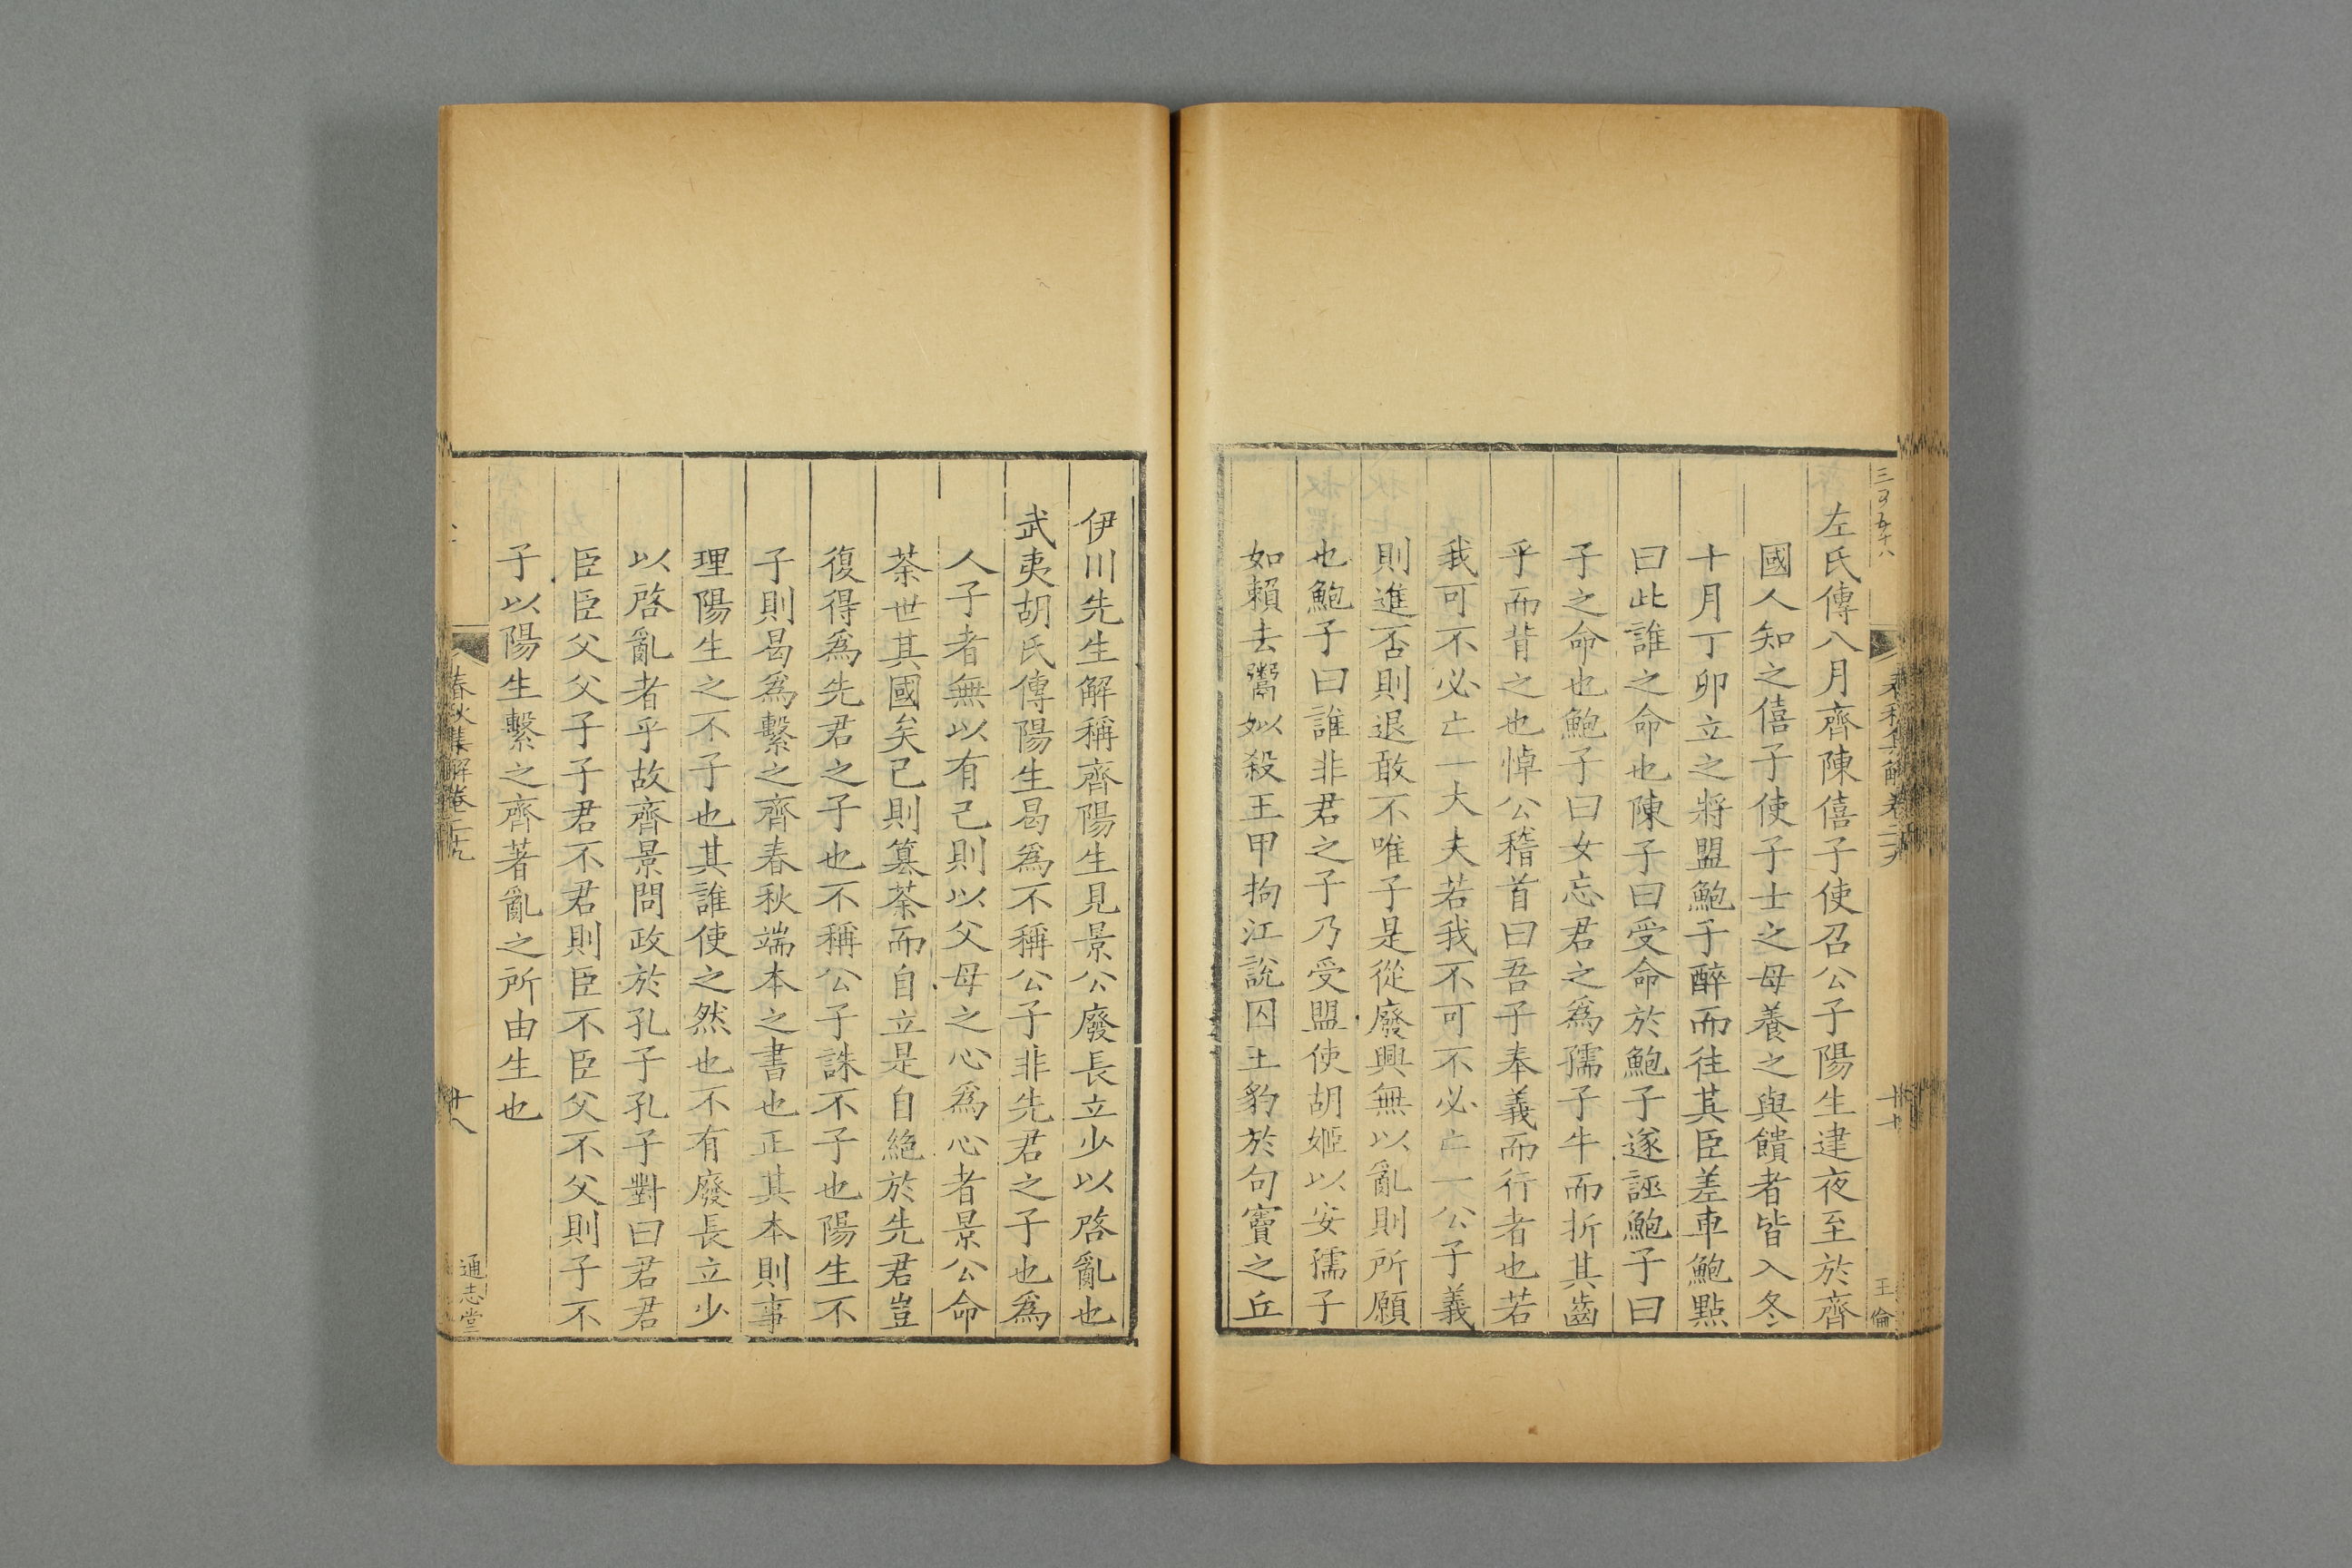 左氏傳八月齊陳僖子使召公子陽生逮夜至於齊
國人知之僖子使子士之母養之與饋者皆入冬
十月丁卯立之將盟鮑子醉而往其臣差車鮑點
曰此誰之命也陳子曰受命於鮑子遂誣鮑子曰
子之命也鮑子曰女忘君之爲孺子牛而折其齒
乎而背之也悼公稽首曰吾子奉義而行者也若
我可不必亡一大夫若我不可不必亡一公子義
則進否則退敢不唯子是從廢興無以亂則所願
也鮑子曰誰非君之子乃受盟使胡姬以安孺子
如賴去鬻姒殺王甲拘江說囚王豹於句竇之丘
伊川先生解稱齊陽生見景公廢長立少以啓亂也
武夷胡氏傳陽生曷爲不稱公子非先君之子也爲
人子者無以有己則以父母之心爲心者景公命
荼世其國矣己則篡荼而自立是自絶於先君豈
復得爲先君之子也不稱公子誅不子也陽生不
子則曷爲繫之齊春秋端本之書也正其本則事
理陽生之不子也其誰使之然也不有廢長立少
以啓亂者乎故齊景問政於孔子孔子對曰君君
臣臣父父子子君不君則臣不臣父不父則子不
子以陽生繫之齊著亂之所由生也
春秋集解卷二十九
廿八
通志堂
王倫